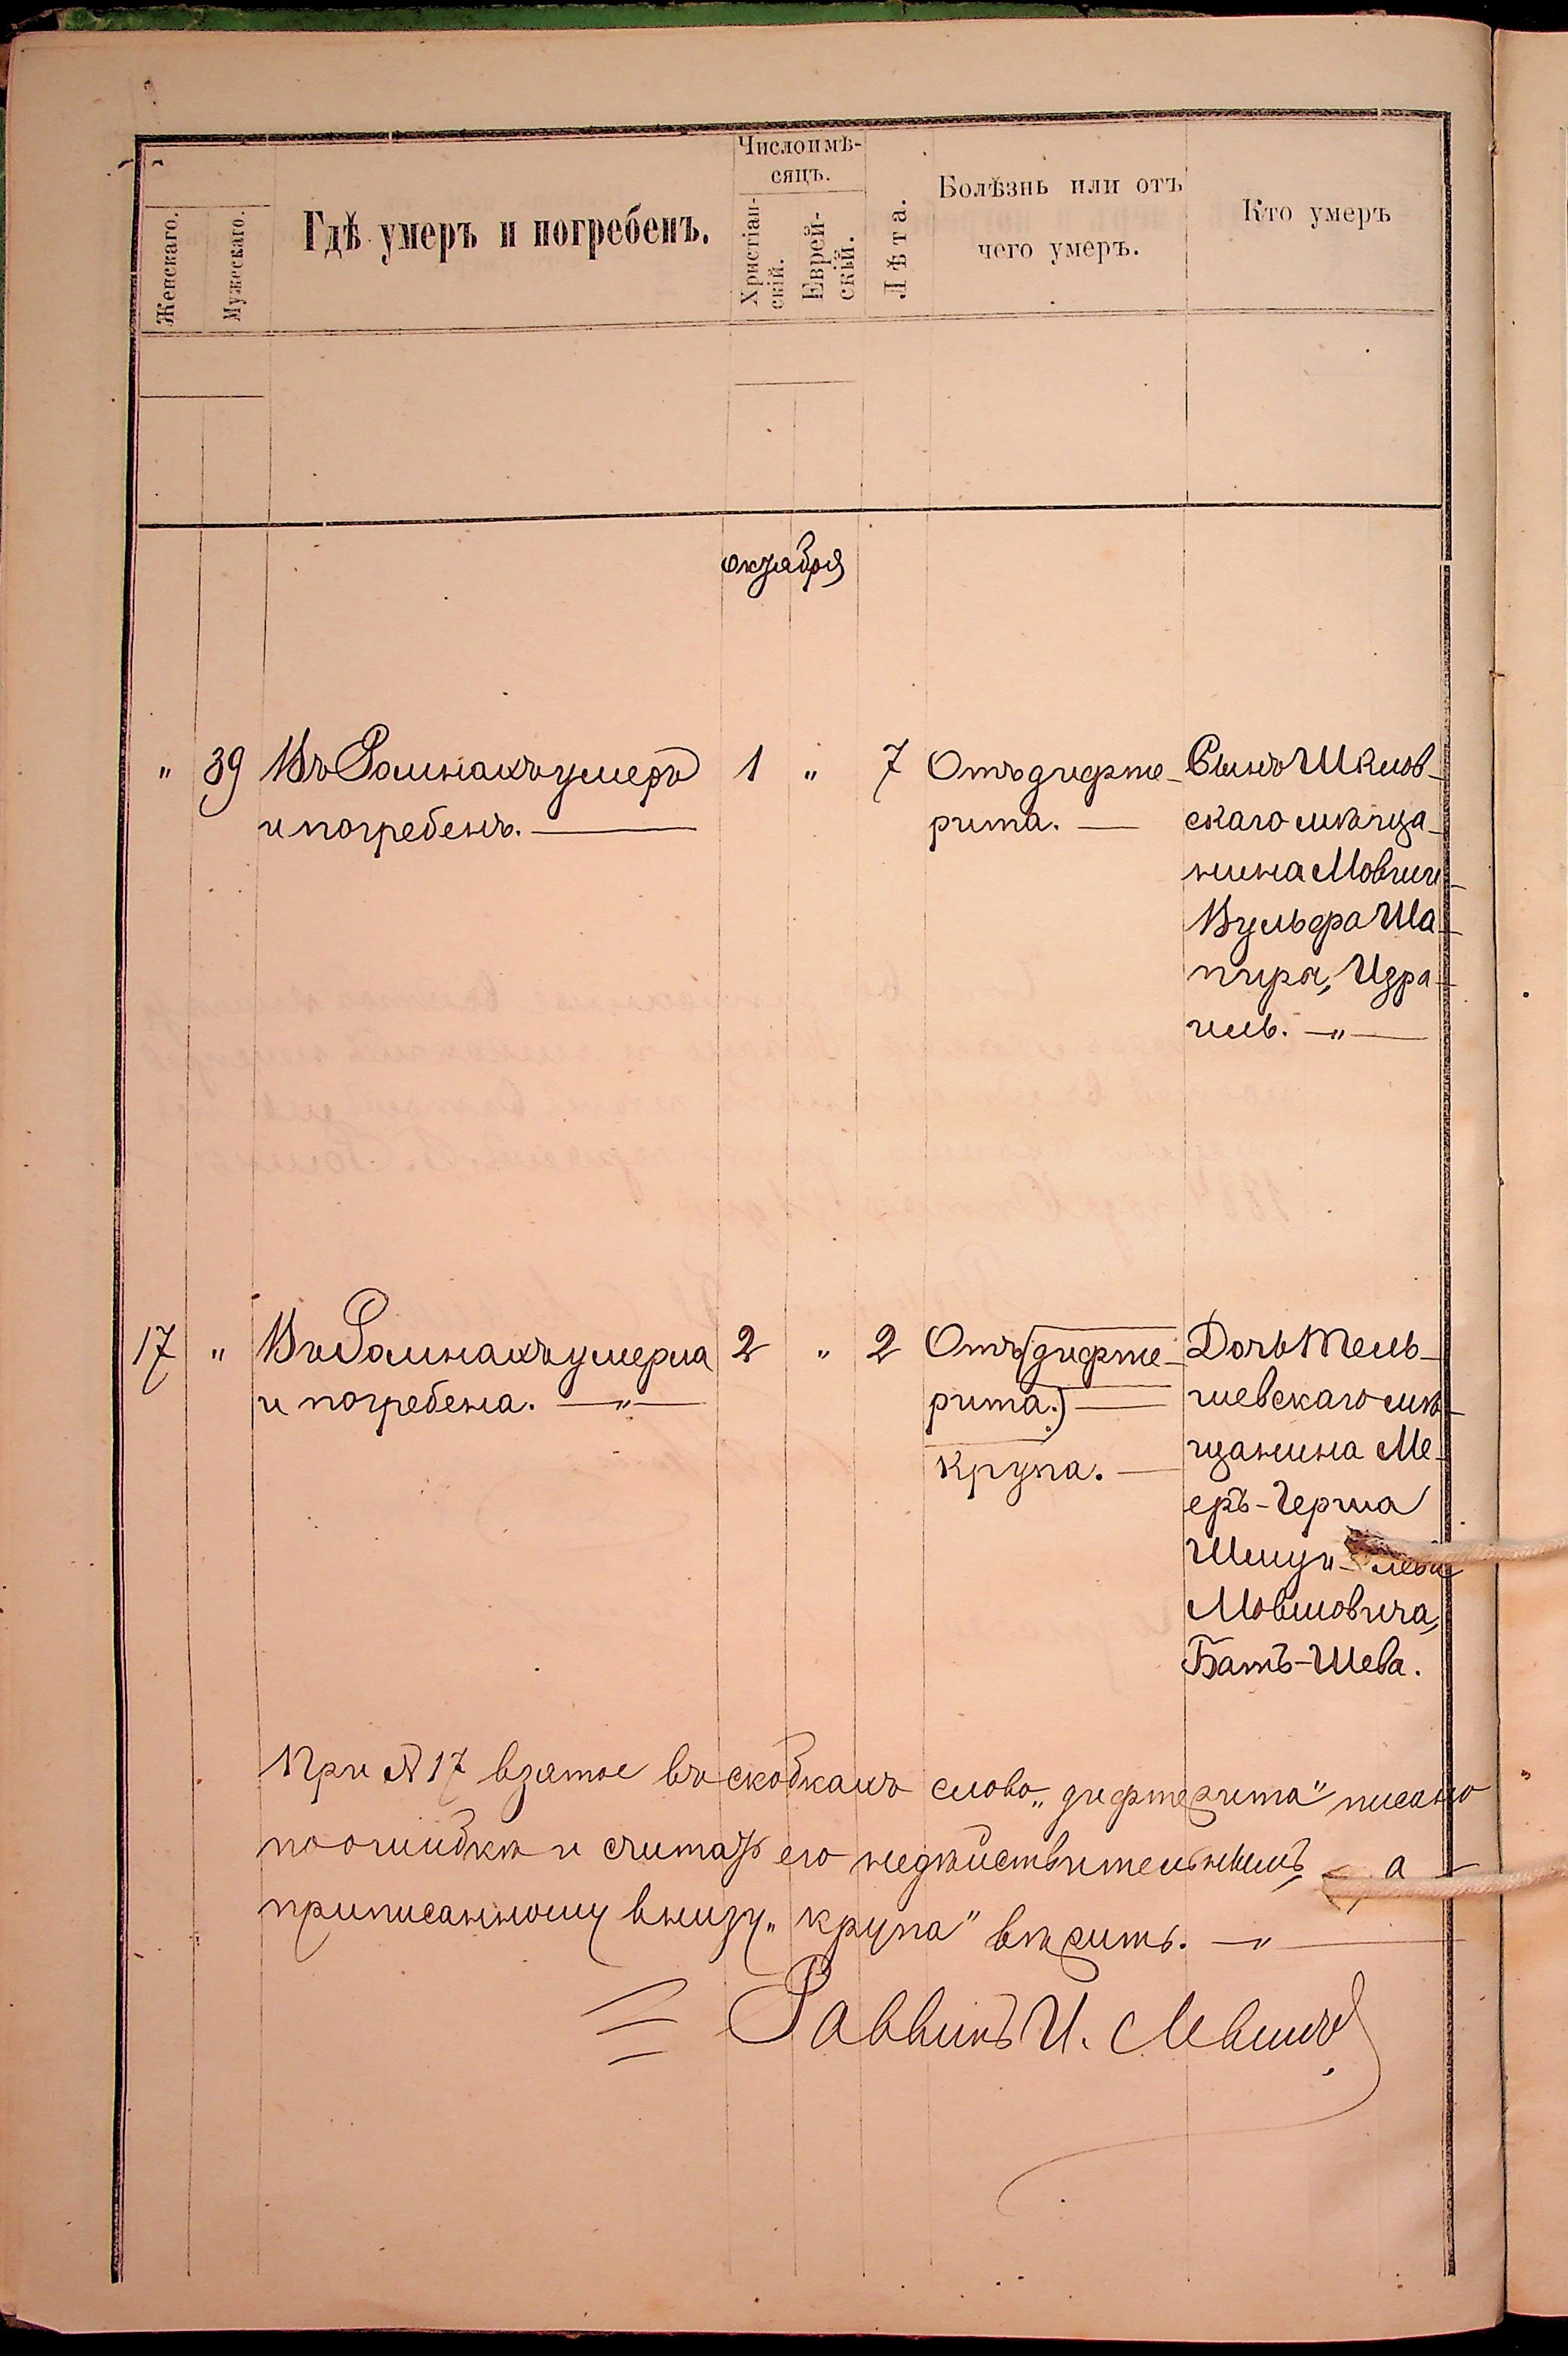 Числоимѣ-
сяцъ.
Женскаго.
Мужескаго.
Гдѣ умеръ и погребенъ.
Христіан-
скій.
Еврей-
скій.
Лѣта.
Болѣзнь или отъ
чего умеръ.
Кто умеръ
октября
" 39 Въ Ромнахъ умеръ 1 " 7 Отъ дифте- Сынъ Шклов-
и погребенъ. — рита. — скаго мѣща-
нина Мовши
Вульфа Ша-
пира, Изра-
иль. —"—
17 " Въ Ромнахъ умерла 2 " 2 Отъ (дифте- Дочь Тель-
и погребена. —"— рита.) — шевскаго мѣ-
крупа. — щанина Ме-
еръ-Герша
Мовшовича,
Батъ-Шева.
При № 17 взятое въ скобкахъ слово „дифтерита" писано
по ошибкѣ и считать его недѣйствительнымъ, а
приписанному внизу „крупа" вѣрить. —"—
Раввинъ И. Левинъ